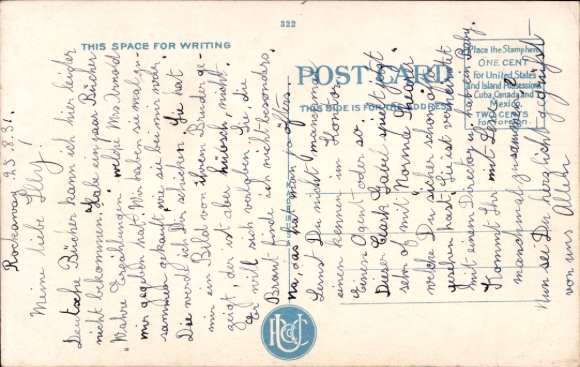 322
THIS SPACE FOR WRITING
POST CARD
THIS SIDE IS FOR THE ADDRESS
Place the Stamp here
ONE CENT
for United States
and Island Possessions
Cuba, Canada and
Mexico.
TWO CENTS
for Foreign.
Rockaway 23.8.31.
Meine liebe Elly!
Deutsche Bücher kann ich hier leider
nicht bekommen. Habe ein paar Bücher
"Wahre Erzählungen" welche Mrs Arnold
mir gegeben hat. Wir haben sie mal zu-
sammen gekauft, wie sie bei mir war.
Die werde ich Dir schicken. Sie hat
mir ein Bild von ihrem Bruder ge-
zeigt, der ist aber hübsch, nicht.
Er will sich verloben. Sie die
Braut finde ich nicht besonders.
Na, das hat man ja öfters.
Lernst Du nicht manchmal
einen kennen im Honover
einen Agent oder so.
Dieser Clark Gabel spielt jetzt
sem of mit Norma Shearer
welche Du sicher schon oft
gesehen hast. Sie ist verheiratet
mit einem Director u. hat ein Baby.
Kommt Ihr mit Lene
manchmal zusammen?
Nun sei Du herzlich gegrüsst
von uns Allen